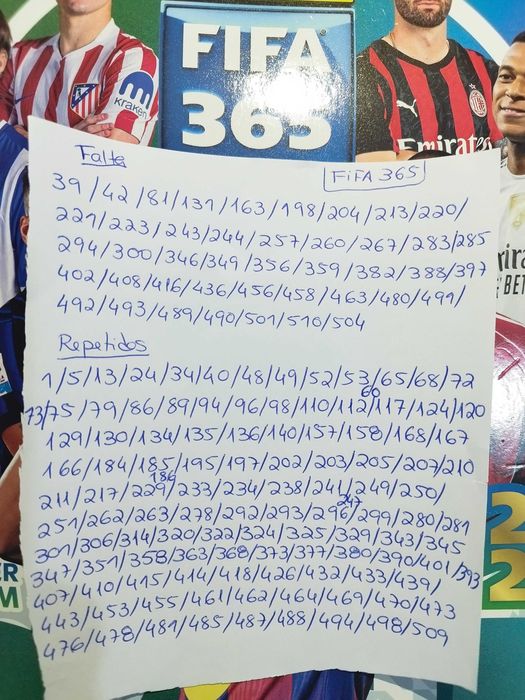 FIFA
365
kraken
Emirates
Falta
FiFA 365
39/42/81/131/163/198/204/213/220/
221/223/243/244/257/260/267/283/285
294/300/346/349/356/359/382/388/397
402/408/416/436/456/458/463/480/491/
492/493/489/490/501/510/504
Repetidos
1/5/13/24/34/40/48/49/52/53/65/68/72
60
73/75/79/86/89/94/96/98/110/112/117/124/120
129/130/134/135/136/140/157/158/168/167
166/184/185/195/197/202/203/205/207/210
186
211/217/229/233/234/238/241/249/250/
247
251/262/263/278/292/293/296/299/280/281
301/306/314/320/322/324/325/329/343/345
347/351/358/363/368/373/377/380/390/401/393
407/410/415/414/418/426/432/433/439/
443/453/455/461/462/464/469/470/473
476/478/481/485/487/488/494/498/509